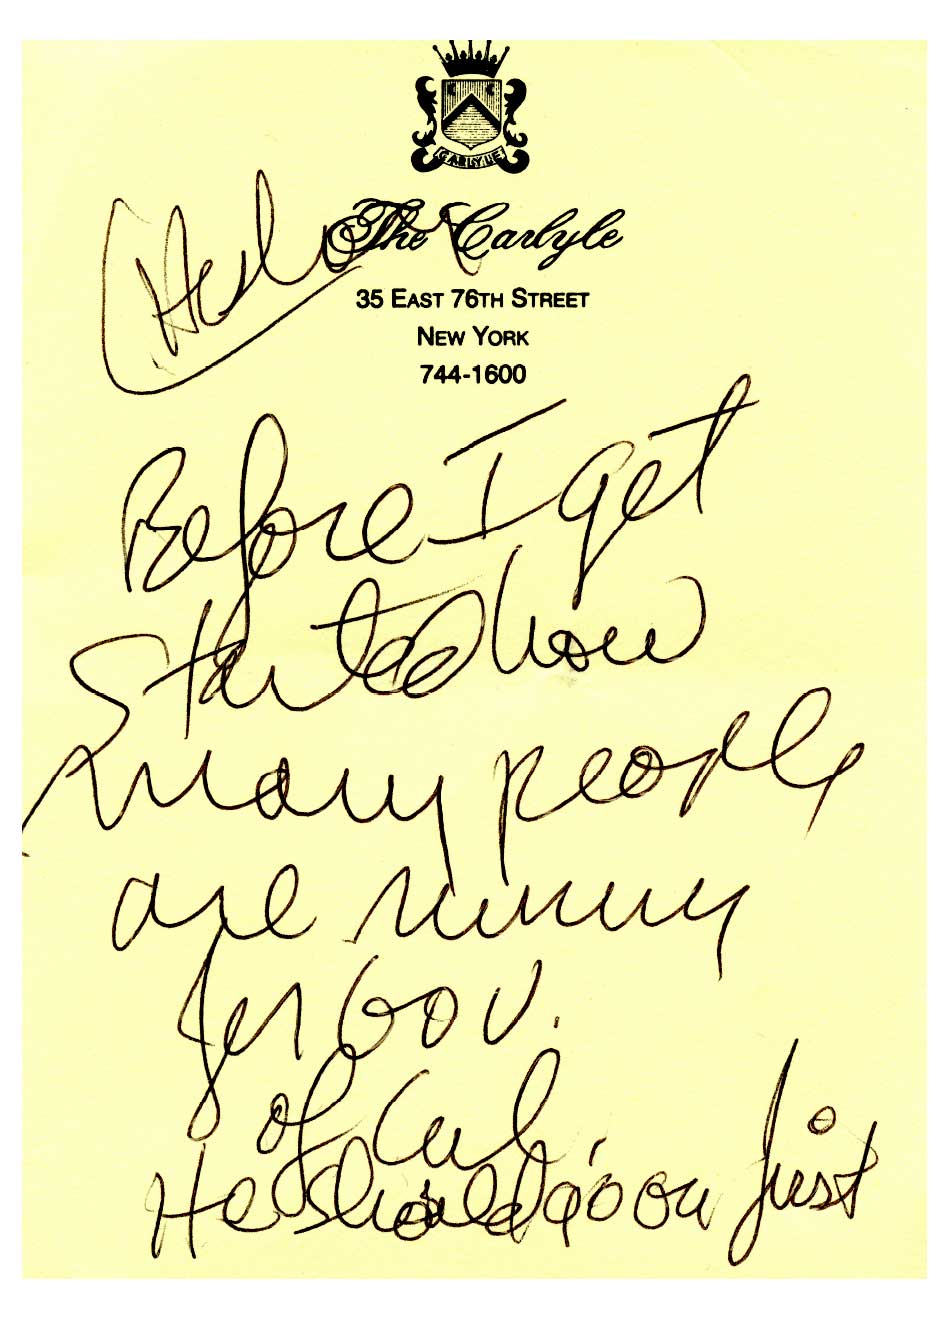 CARLYLE
The Carlyle
35 EAST 76TH STREET
NEW YORK
744-1600
Before I get
Started how
many people
are running
for Gov.
of Cal.
He should just